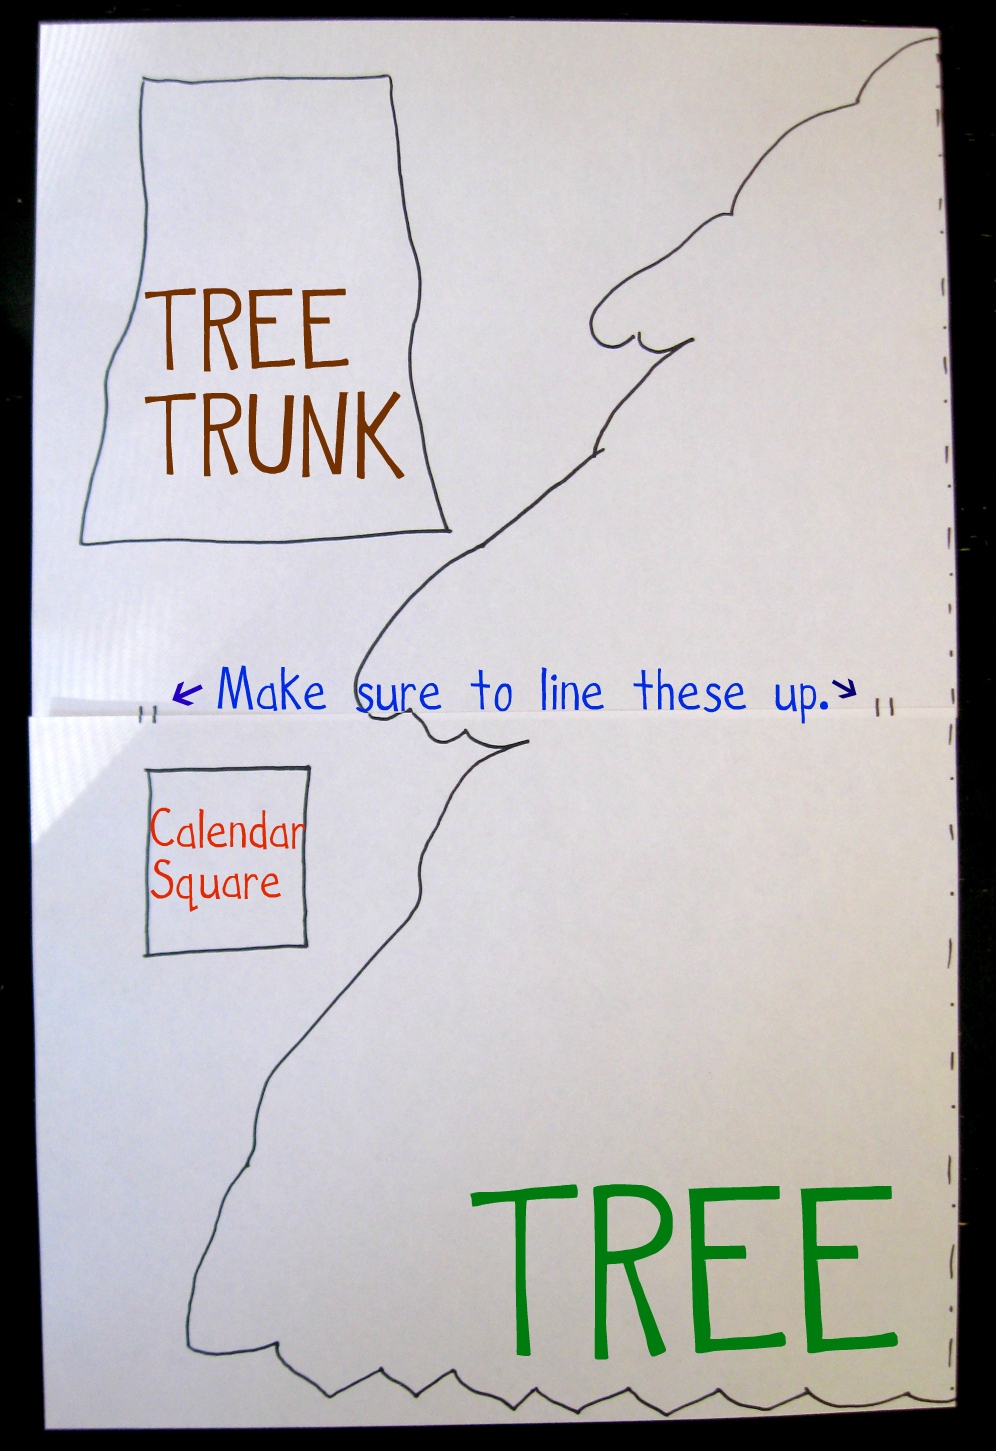 TREE
TRUNK
Make sure to line these up.
Calendar
Square
TREE